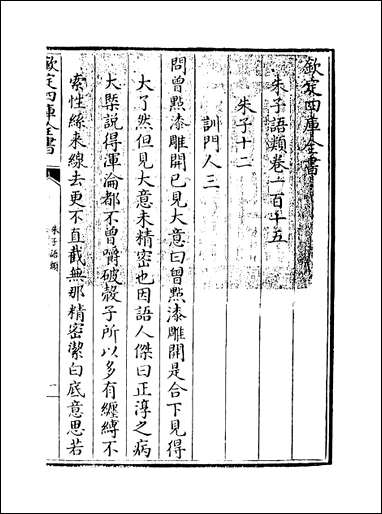 欽定四庫全書
朱子語類卷一百十五
朱子十二
訓門人三
問曾點漆雕開已見大意曰曾點漆雕開是合下見得
大了然但見大意未精密也因語人傑曰正淳之病
大槩說得渾淪都不曾嚼破殼子所以多有纏縛不
索性絲来線去更不直截無那精密潔白底意思若
欽定四庫全書
朱子語類
一